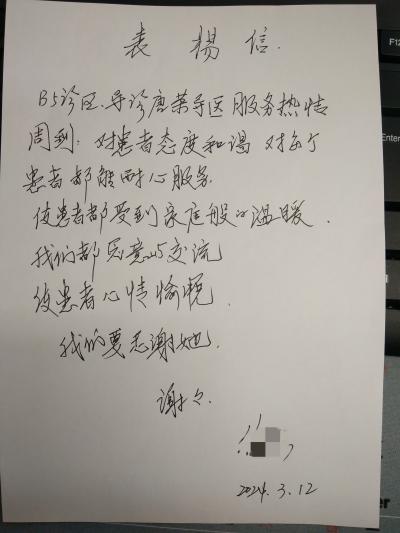 表揚信.
B5诊区.导诊唐荣导医服务热情
周到.对患者态度和谒 对每个
患者都能耐心服务.
使患者都受到家庭般的温暖.
我们都愿意与交流
使患者心情愉悦.
我们要感谢她.
谢々.
2024.3.12
F12
Enter